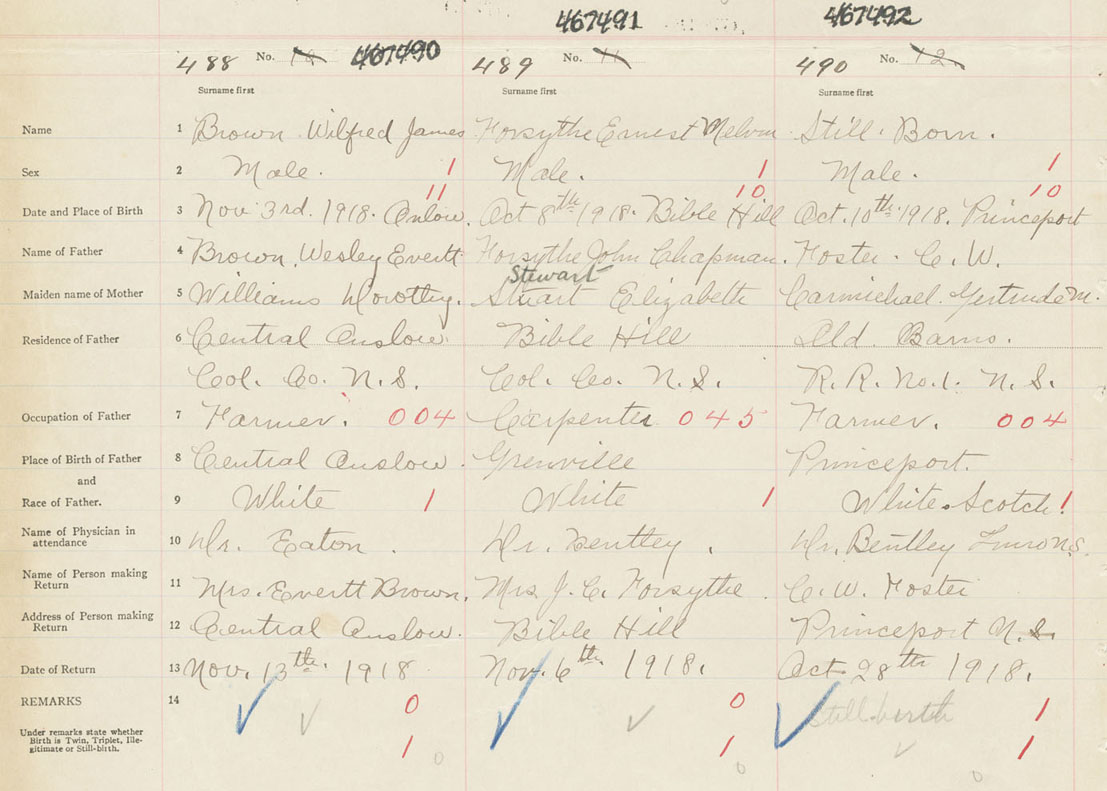 467491 467492
488 No. 10 467490 489 No. 11 490 No. 12
Surname first Surname first Surname first
Name 1 Brown Wilfred James Forsythe Ernest Melvin Still Born.
Sex 2 Male. 1 Male. 1 Male. 1
11 10 10
Date and Place of Birth 3 Nov 3rd. 1918. Onlow. Oct 8th 1918. Bible Hill Oct. 10th 1918. Princeport
Name of Father 4 Brown, Wesley Evertt Forsythe John Chapman. Foster. C. W.
Stewart
Maiden name of Mother 5 Williams Dorothy. Stuart Elizabeth Carmichael. Gertrude M.
Residence of Father 6 Central Onslow. Bible Hill Old Barns.
Col. Co. N.S. Col. Co. N.S. R.R. No. 1. N.S.
Occupation of Father 7 Farmer. 004 Carpenter 045 Farmer. 004
Place of Birth of Father 8 Central Onslow. Grenville Princeport.
and
Race of Father. 9 White 1 White 1 White. Scotch 1
Name of Physician in
attendance 10 Dr. Eaton. Dr. Bentley. Dr. Bentley Truro N.S.
Name of Person making
Return 11 Mrs. Evertt Brown. Mrs J. C. Forsythe. C. W. Foster
Address of Person making
Return 12 Central Onslow. Bible Hill Princeport N.S.
Date of Return 13 Nov. 13th. 1918 Nov. 6th 1918. Oct 28th 1918.
REMARKS 14 0 0 Stillbirth 1
Under remarks state whether
Birth is Twin, Triplet, Ille-
gitimate or Still-birth. 1 0 1 0 1 0